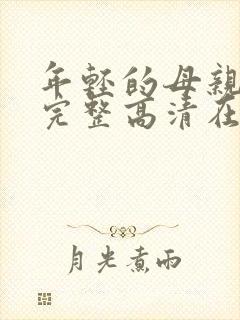 年轻的母亲
完整高清在
月光煮雨